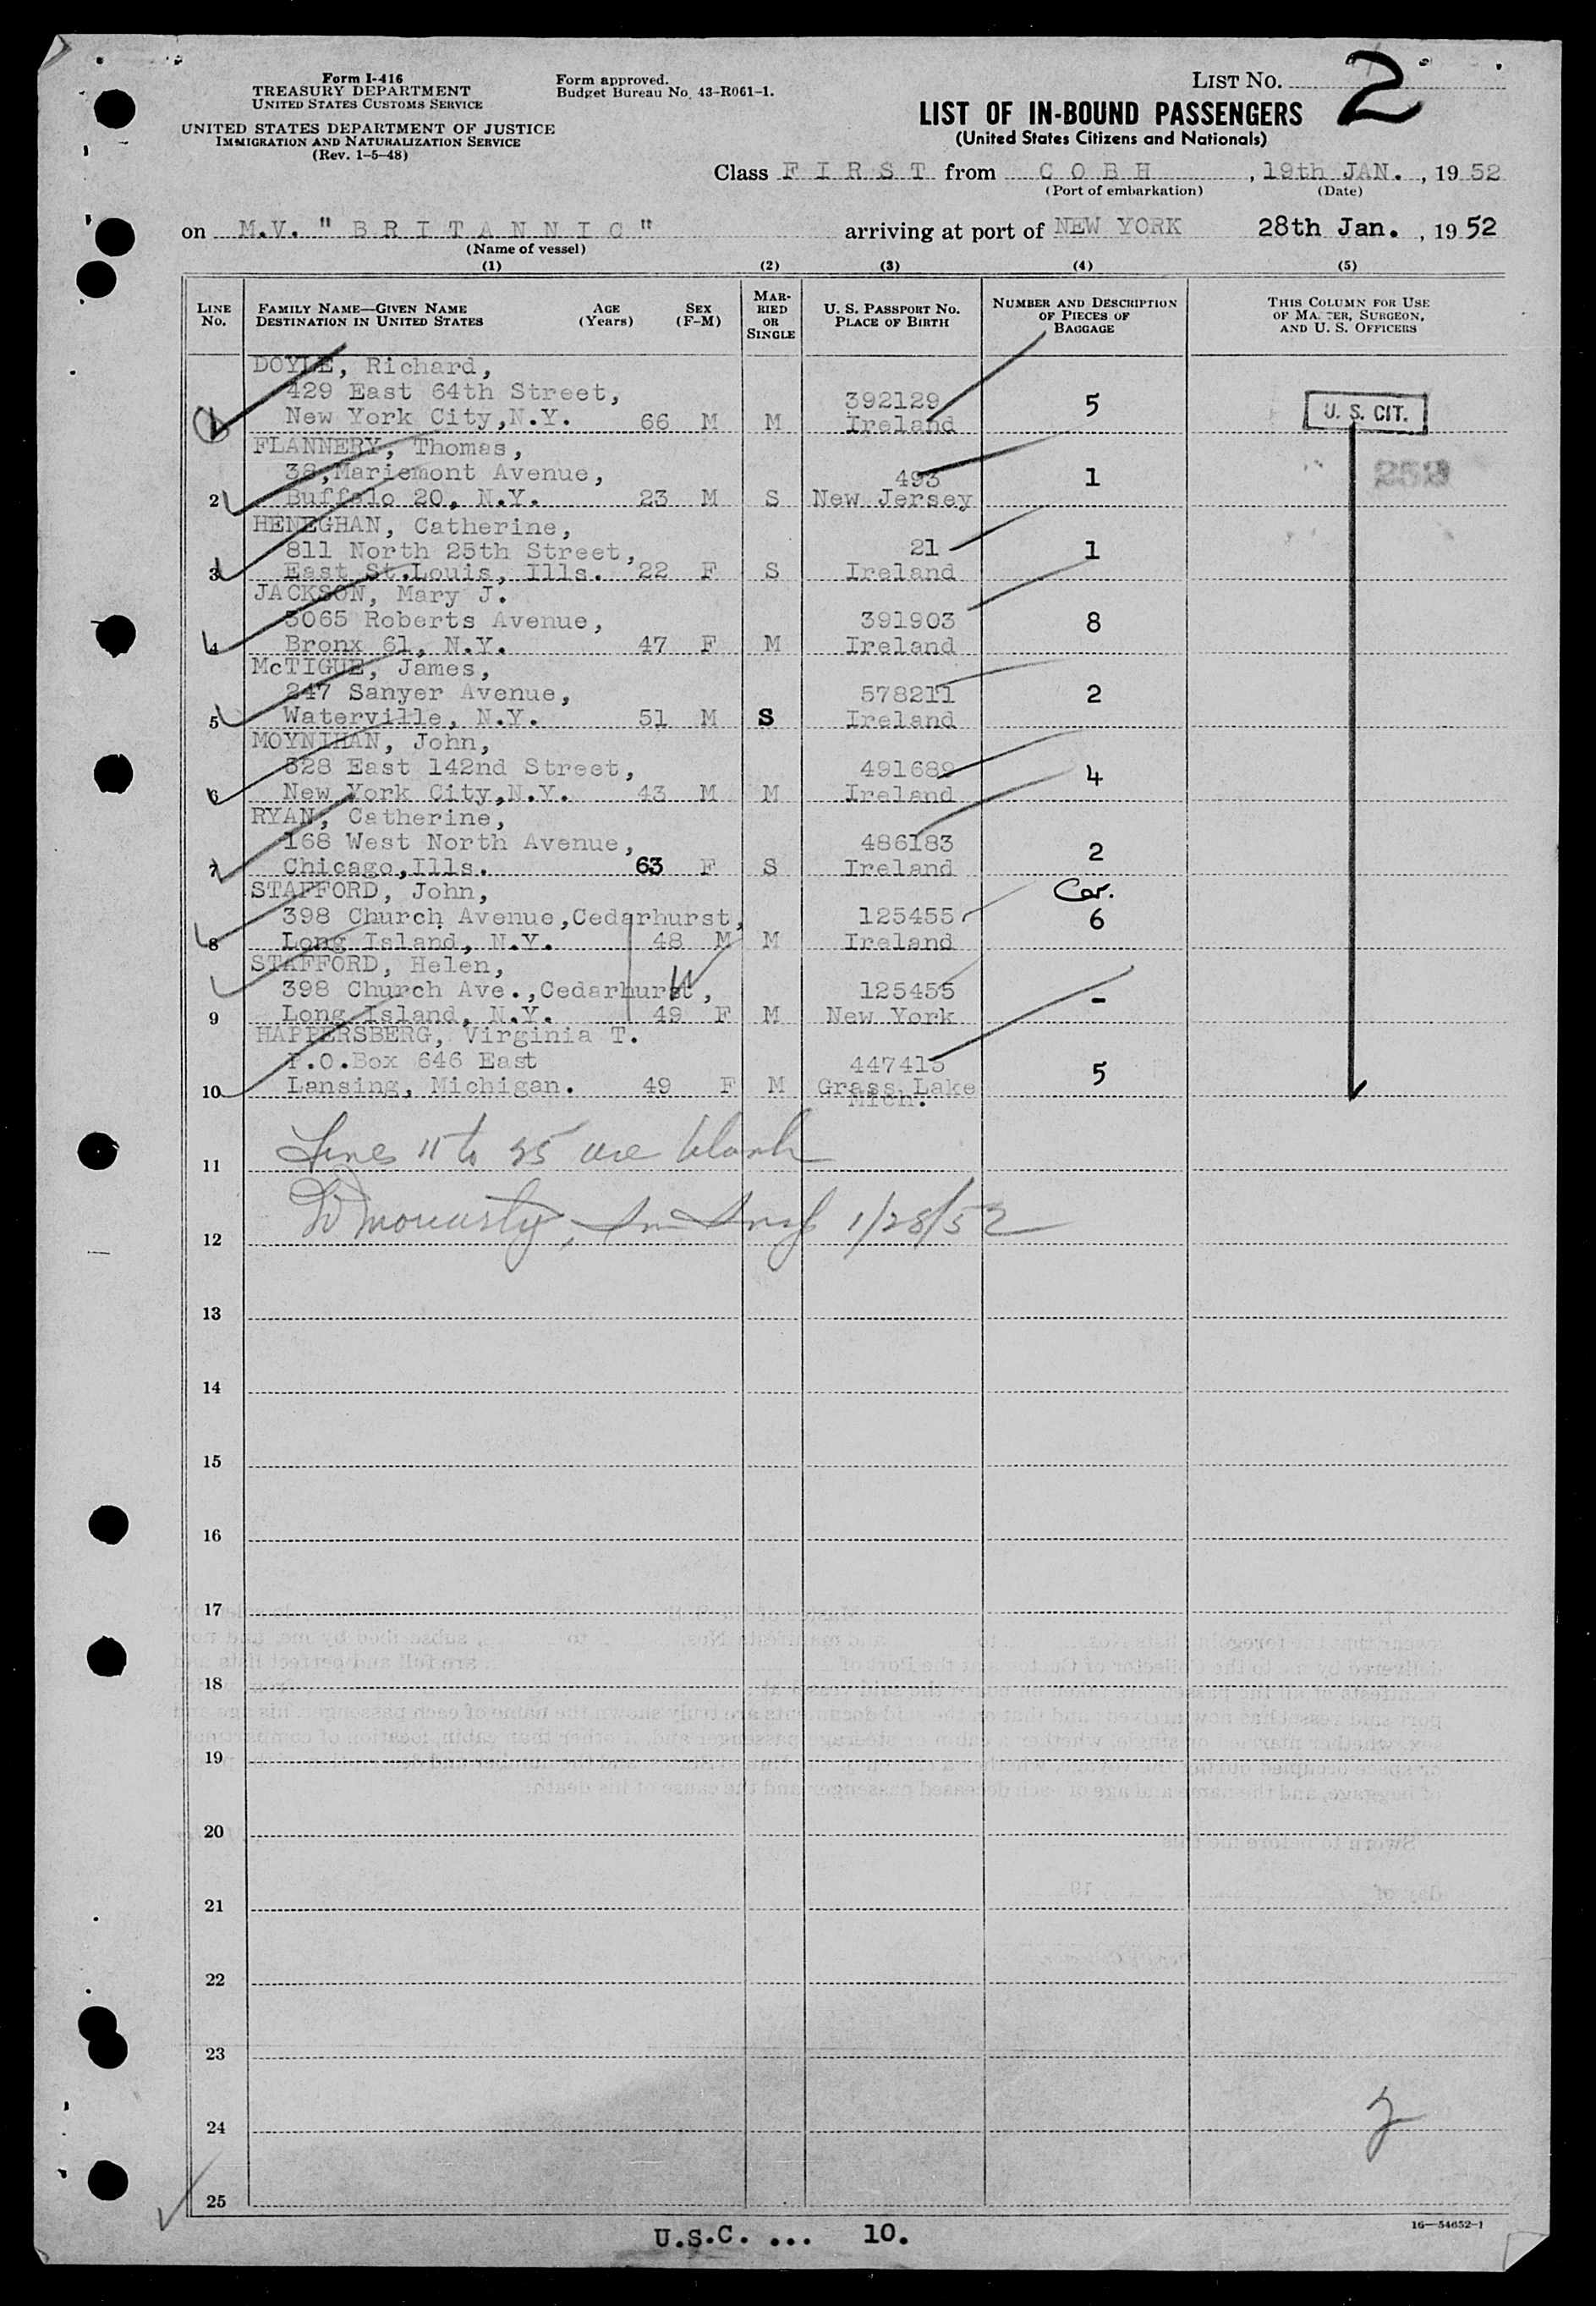 Form I-416
TREASURY DEPARTMENT
UNITED STATES CUSTOMS SERVICE
UNITED STATES DEPARTMENT OF JUSTICE
IMMIGRATION AND NATURALIZATION SERVICE
(Rev. 1-5-48)
Form approved.
Budget Bureau No. 43-R061-1.
LIST NO. 2
LIST OF IN-BOUND PASSENGERS
(United States Citizens and Nationals)
Class F I R S T from C O B H, 19th JAN., 1952
(Port of embarkation) (Date)
on M.V. " B R I T A N N I C " arriving at port of NEW YORK 28th Jan., 1952
(Name of vessel)
(1) (2) (3) (4) (5)
LINE NO.
FAMILY NAME—GIVEN NAME
DESTINATION IN UNITED STATES
AGE (Years)
SEX (F-M)
MARRIED OR SINGLE
U. S. PASSPORT NO.
PLACE OF BIRTH
NUMBER AND DESCRIPTION OF PIECES OF BAGGAGE
THIS COLUMN FOR USE OF MASTER, SURGEON, AND U. S. OFFICERS
DOYLE, Richard,
429 East 64th Street, 392129 5 U. S. CIT.
New York City,N.Y. 66 M M Ireland
FLANNERY, Thomas,
38,Mariemont Avenue, 493 1
2 Buffalo 20, N.Y. 23 M S New Jersey
HENEGHAN, Catherine,
811 North 25th Street, 21 1
3 East St.Louis, Ills. 22 F S Ireland
JACKSON, Mary J.
3065 Roberts Avenue, 391903 8
4 Bronx 61, N.Y. 47 F M Ireland
McTIGUE, James,
247 Sanyer Avenue, 578211 2
5 Waterville, N.Y. 51 M S Ireland
MOYNIHAN, John,
328 East 142nd Street, 491689 4
6 New York City,N.Y. 43 M M Ireland
RYAN, Catherine,
168 West North Avenue, 486183 2
7 Chicago,Ills. 63 F S Ireland
STAFFORD, John, Car.
398 Church Avenue,Cedarhurst, 125455 6
8 Long Island, N.Y. 48 M M Ireland
STAFFORD, Helen,
398 Church Ave.,Cedarhurst, 125455 -
9 Long Island, N.Y. 49 F M New York
HAPPERSBERG, Virginia T.
P.O.Box 646 East 447415 5
10 Lansing, Michigan. 49 F M Grass Lake
Mich.
Lines 11 to 25 are blank
11
1/28/52
12
13
14
15
16
17
18
19
20
21
22
23
24
25
2
16—54652-1
U.S.C. ... 10.